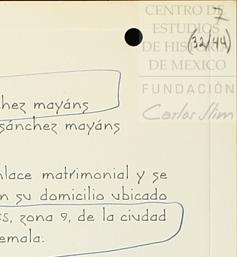 7
CENTRO DE
ESTUDIOS
DE HISTORIA
(32/44)
DE MEXICO
FUNDACIÓN
Carlos Slim
chez mayáns
sánchez mayáns
nlace matrimonial y se
n su domicilio ubicado
s, zona 9, de la ciudad
emala.